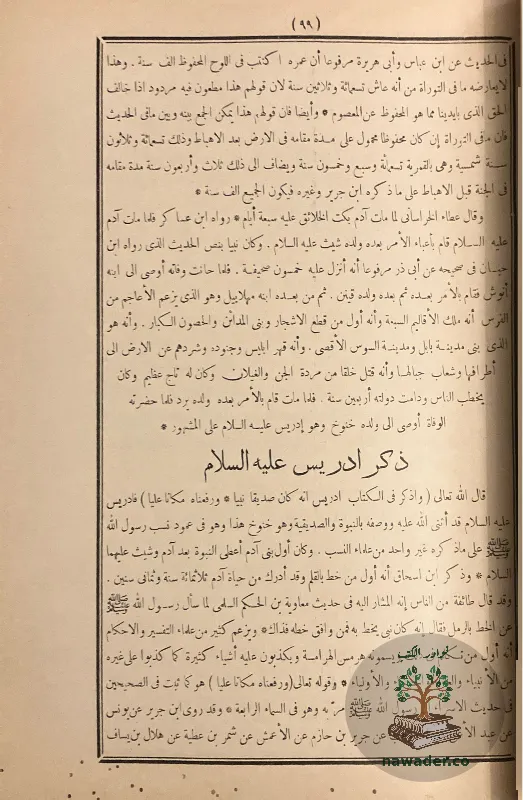 (٩٩)
فى الحديث عن ابن عباس وأبى هريرة مرفوعا أن عمره اكتتب فى اللوح المحفوظ الف سنة . وهذا
لايعارضه ما فى التوراة من أنه عاش تسعمائة وثلاثين سنة لان قولهم هذا مطعون فيه مردود اذا خالف
الحق الذى بايدينا مما هو المحفوظ عن المعصوم * وأيضا فان قولهم هذا يمكن الجمع بينه وبين مافى الحديث
فان مافى التوراة إن كان محفوظا محمول على مدة مقامه فى الارض بعد الاهباط وذلك تسعمائة وثلاثون
سنة شمسية وهى بالقمرية تسعمائة وسبع وخمسون سنة ويضاف الى ذلك ثلاث وأربعون سنة مدة مقامه
فى الجنة قبل الاهباط على ما ذكره ابن جرير وغيره فيكون الجميع الف سنة *
وقال عطاء الخراسانى لما مات آدم بكت الخلائق عليه سبعة أيام * رواه ابن عساكر فلما مات آدم
عليه السلام قام بأعباء الأمر بعده ولده شيث عليه السلام . وكان نبيا بنص الحديث الذى رواه ابن
حبان فى صحيحه عن أبى ذر مرفوعا أنه أنزل عليه خمسون صحيفة . فلما حانت وفاته أوصى الى ابنه
أنوش فقام بالأمر بعده ثم بعده ولده قينن . ثم من بعده ابنه مهلاييل وهو الذى يزعم الأعاجم من
الفرس أنه ملك الأقاليم السبعة وأنه أول من قطع الاشجار وبنى المدائن والحصون الكبار . وأنه هو
الذى بنى مدينة بابل ومدينة السوس الأقصى . وأنه قهر ابليس وجنوده وشردهم عن الارض الى
أطرافها وشعاب جبالها وأنه قتل خلقا من مردة الجن والغيلان وكان له تاج عظيم وكان
يخطب الناس ودامت دولته أربعين سنة . فلما مات قام بالأمر بعده ولده يرد فلما حضرته
الوفاة أوصى الى ولده خنوخ وهو إدريس عليه السلام على المشهور *
ذكر ادريس عليه السلام
قال الله تعالى ( واذكر فى الكتاب ادريس انه كان صديقا نبيا * ورفعناه مكانا عليا ) فادريس
عليه السلام قد أثنى الله عليه ووصفه بالنبوة والصديقية وهو خنوخ هذا وهو فى عمود نسب رسول الله
ﷺ على ماذكره غير واحد من علماء النسب . وكان أول بنى آدم أعطى النبوة بعد آدم وشيث عليهما
السلام * وذكر ابن اسحاق أنه أول من خط بالقلم وقد أدرك من حياة آدم ثلاثمائة سنة وثمانى سنين .
وقد قال طائفة من الناس إنه المشار اليه فى حديث معاوية بن الحكم السلمى لما سأل رسول الله ﷺ
عن الخط بالرمل فقال إنه كان نبى يخط به فمن وافق خطه فذاك * ويزعم كثير من علماء التفسير والاحكام
أنه أول من ويسمونه هرمس الهرامسة ويكذبون عليه أشياء كثيرة كما كذبوا على غيره
من الأنبياء والأولياء * وقوله تعالى (ورفعناه مكانا عليا ) هو كما ثبت فى الصحيحين
فى حديث رسول الله ﷺ مر به وهو فى السماء الرابعة * وقد روى ابن جرير عن يونس
عن عبد عن جرير بن حازم عن الأعمش عن شمر بن عطية عن هلال بن يساف
نوادر الكتب
nawader.co